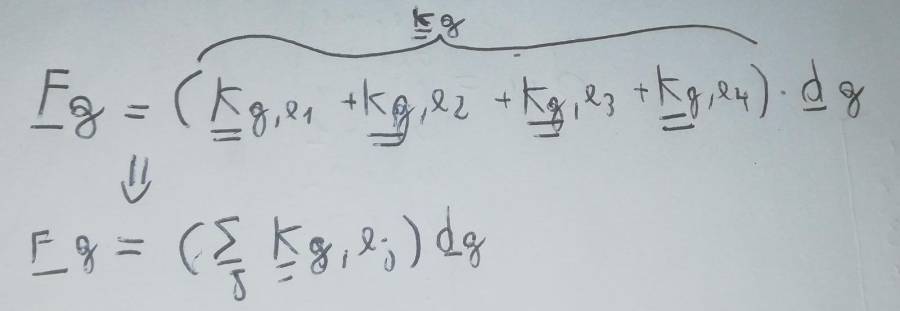 K̳g
F̲g = (K̳g,e1 + K̳g,e2 + K̳g,e3 + K̳g,e4) · d̲g
⇓
F̲g = (∑j K̳g,ej) d̲g